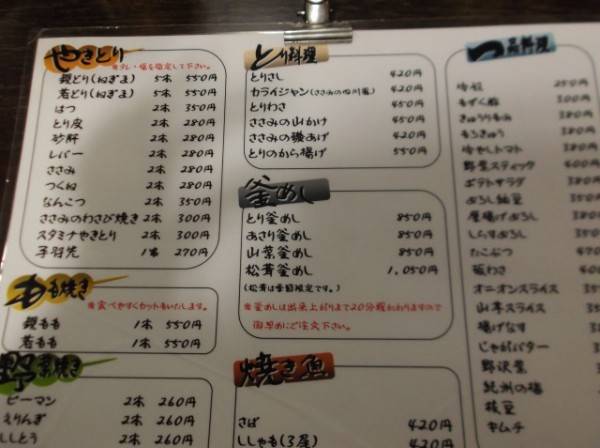 やきとり
※タレ・塩を指定して下さい。
親どり(ねぎま) 5本 550円
若どり(ねぎま) 5本 550円
はつ 2本 350円
とり皮 2本 280円
砂肝 2本 280円
レバー 2本 280円
ささみ 2本 280円
つくね 2本 280円
なんこつ 2本 350円
ささみのわさび焼き 2本 300円
スタミナやきとり 2本 300円
手羽先 1本 270円
もも焼き
※食べやすくカットもいたします。
親もも 1本 550円
若もも 1本 550円
野菜焼き
ピーマン 2本 260円
えりんぎ 2本 260円
ししとう 2本 260円
とり料理
とりさし 420円
カライジャン(ささみの四川風) 420円
とりわさ 450円
ささみの山かけ 450円
ささみの磯あげ 420円
とりのから揚げ 550円
釜めし
とり釜めし 850円
あさり釜めし 850円
山菜釜めし 850円
松茸釜めし 1,050円
(松茸は季節限定です。)
※釜めしは出来上がりまで20分程かかりますので
御早めにご注文下さい。
焼き魚
さば 420円
ししゃも(3尾) 420円
一品料理
冷奴 250円
もずく酢 300円
きゅうりもみ 380円
もろきゅう 380円
冷やしトマト 380円
野菜スティック 400円
ポテトサラダ 380
おろし納豆 380
厚揚げおろし 380
しらすおろし
たこぶつ
板わさ
オニオンスライス
山芋スライス
揚げなす
じゃがバター
野沢菜
紀州の梅
枝豆
キムチ